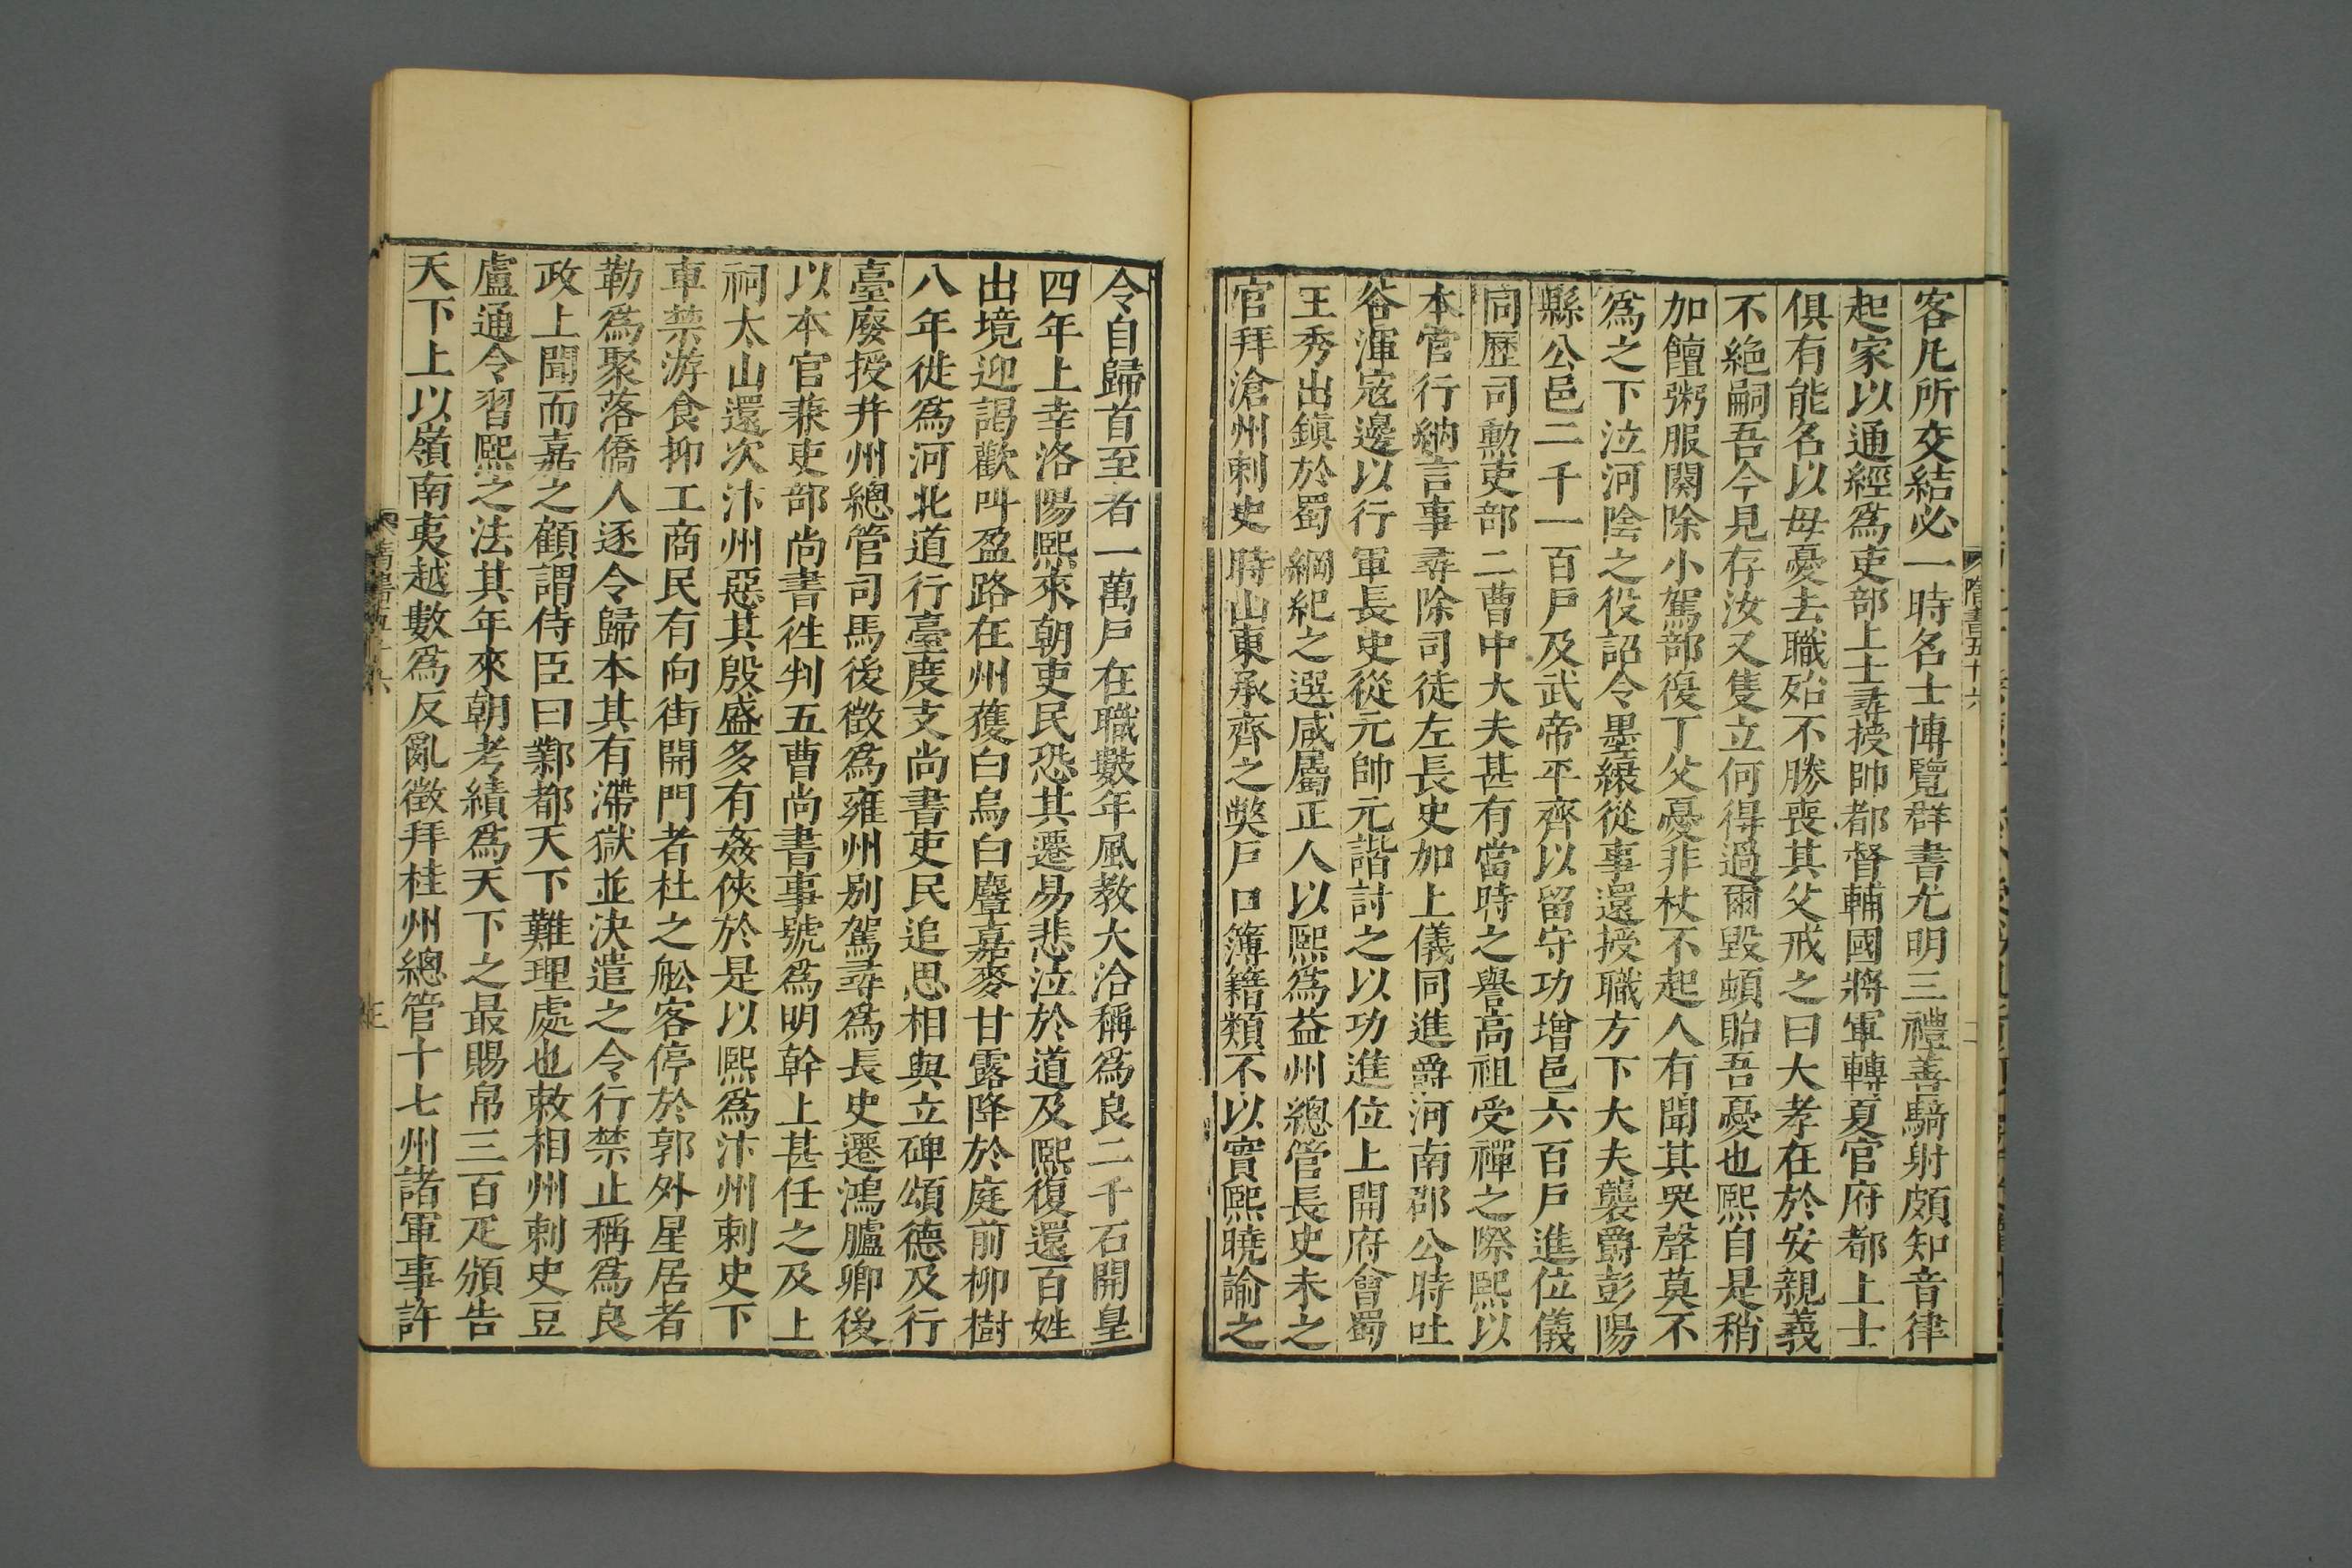 隋書五十六
客凡所交結必一時名士博覽群書尤明三禮善騎射頗知音律
起家以通經爲吏部上士尋授帥都督輔國將軍轉夏官府都上士
俱有能名以母憂去職殆不勝喪其父戒之曰大孝在於安親義
不絶嗣吾今見存汝又隻立何得過爾毀頓貽吾憂也熙自是稍
加饘粥服闋除小駕部復丁父憂非杖不起人有聞其哭聲莫不
爲之下泣河陰之役詔令墨縗從事還授職方下大夫襲爵彭陽
縣公邑二千一百戶及武帝平齊以留守功增邑六百戶進位儀
同歷司勳吏部二曹中大夫甚有當時之譽高祖受禪之際熙以
本官行納言事尋除司徒左長史加上儀同進爵河南郡公時吐
谷渾寇邊以行軍長史從元帥元諧討之以功進位上開府會蜀
王秀出鎮於蜀綱紀之選咸屬正人以熙爲益州總管長史未之
官拜滄州刺史時山東承齊之獘戶口簿籍類不以實熙曉諭之
令自歸首至者一萬戶在職數年風教大洽稱爲良二千石開皇
四年上幸洛陽熙來朝吏民恐其遷易悲泣於道及熙復還百姓
出境迎謁歡叫盈路在州獲白烏白麞嘉麥甘露降於庭前柳樹
八年徙爲河北道行臺度支尚書吏民追思相與立碑頌德及行
臺廢授并州總管司馬後徵爲雍州別駕尋爲長史遷鴻臚卿後
以本官兼吏部尚書徃判五曹尚書事號爲明幹上甚任之及上
祠太山還次汴州惡其殷盛多有姦俠於是以熙爲汴州刺史下
車禁游食抑工商民有向街開門者杜之舩客停於郭外星居者
勒爲聚落僑人逐令歸本其有滯獄並決遣之令行禁止稱爲良
政上聞而嘉之顧謂侍臣曰鄴都天下難理處也敕相州刺史豆
盧通令習熙之法其年來朝考績爲天下之最賜帛三百疋頒告
天下上以嶺南夷越數爲反亂徵拜桂州總管十七州諸軍事許